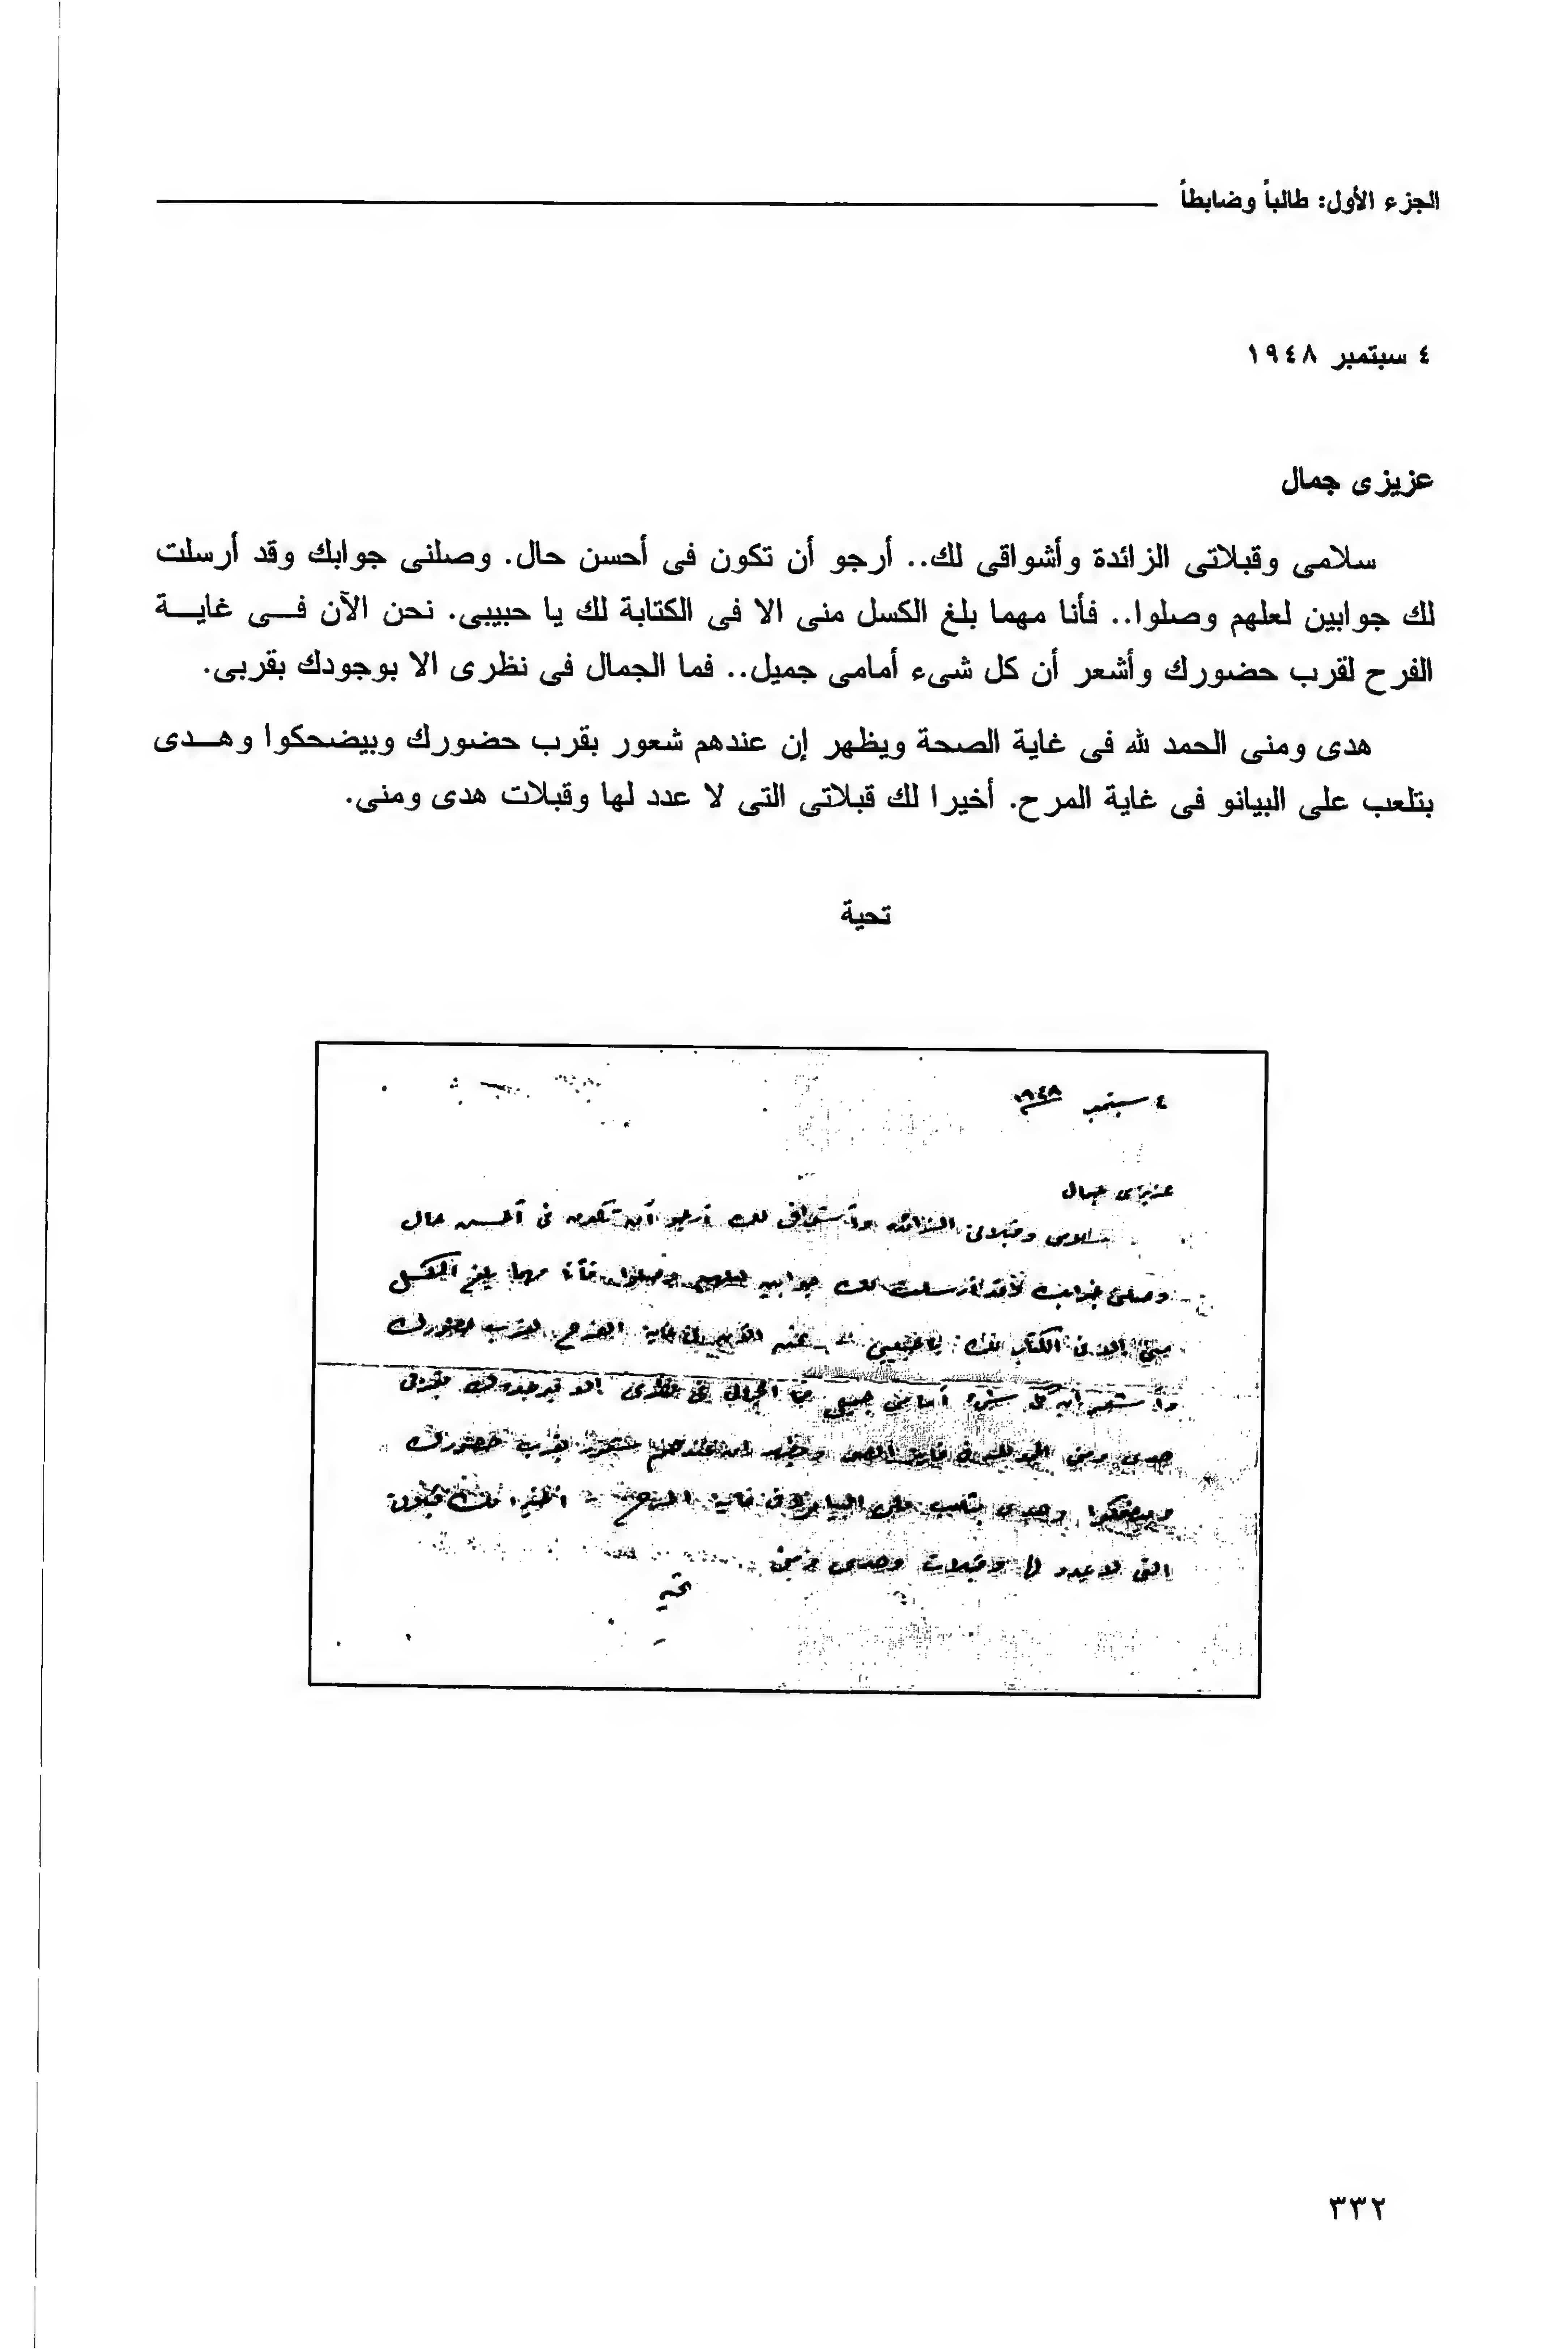 الجزء الأول: طالباً وضابطاً
٤ سبتمبر ١٩٤٨
عزيزى جمال
سلامى وقبلاتى الزائدة وأشواقى لك.. أرجو أن تكون فى أحسن حال. وصلنى جوابك وقد أرسلت
لك جوابين لعلهم وصلوا.. فأنا مهما بلغ الكسل منى الا فى الكتابة لك يا حبيبى. نحن الآن فــى غايــة
الفرح لقرب حضورك وأشعر أن كل شىء أمامى جميل.. فما الجمال فى نظرى الا بوجودك بقربى.
هدى ومنى الحمد لله فى غاية الصحة ويظهر إن عندهم شعور بقرب حضورك وبيضحكوا وهــدى
بتلعب على البيانو فى غاية المرح. أخيرا لك قبلاتى التى لا عدد لها وقبلات هدى ومنى.
تحية
٤ سبتمبر ١٩٤٨
عزيزى جمال
سلامى وقبلاتى الزائدة وأشواقى لك أرجو أن تكون فى أحسن حال
وصلنى جوابك وقد أرسلت لك جوابين لعلهم وصلوا فأنا مهما بلغ الكسل
منى الا فى الكتابة لك يا حبيبى نحن الآن فى غاية الفرح لقرب حضورك
وأشعر أن كل شىء أمامى جميل فما الجمال فى نظرى الا بوجودك بقربى
هدى ومنى الحمد لله فى غاية الصحة ويظهر ان عندهم شعور بقرب حضورك
وبيضحكوا وهدى بتلعب على البيانو فى غاية المرح أخيرا لك قبلاتى
التى لا عدد لها وقبلات هدى ومنى
تحية
٣٣٢